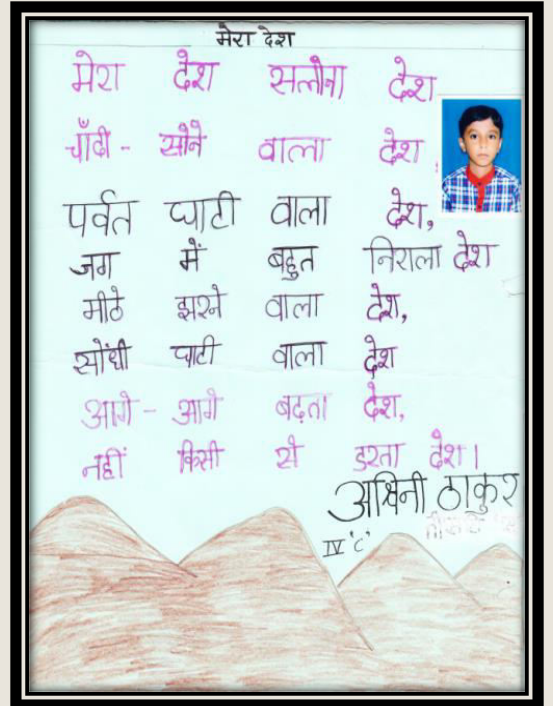 मेरा देश
मेरा देश सलोना देश
चाँदी - सोने वाला देश,
पर्वत घाटी वाला देश,
जग में बहुत निराला देश
मीठे झरने वाला देश,
सोंधी घाटी वाला देश
आगे - आगे बढ़ता देश,
नहीं किसी से डरता देश।
अश्विनी ठाकुर
IV 'C'